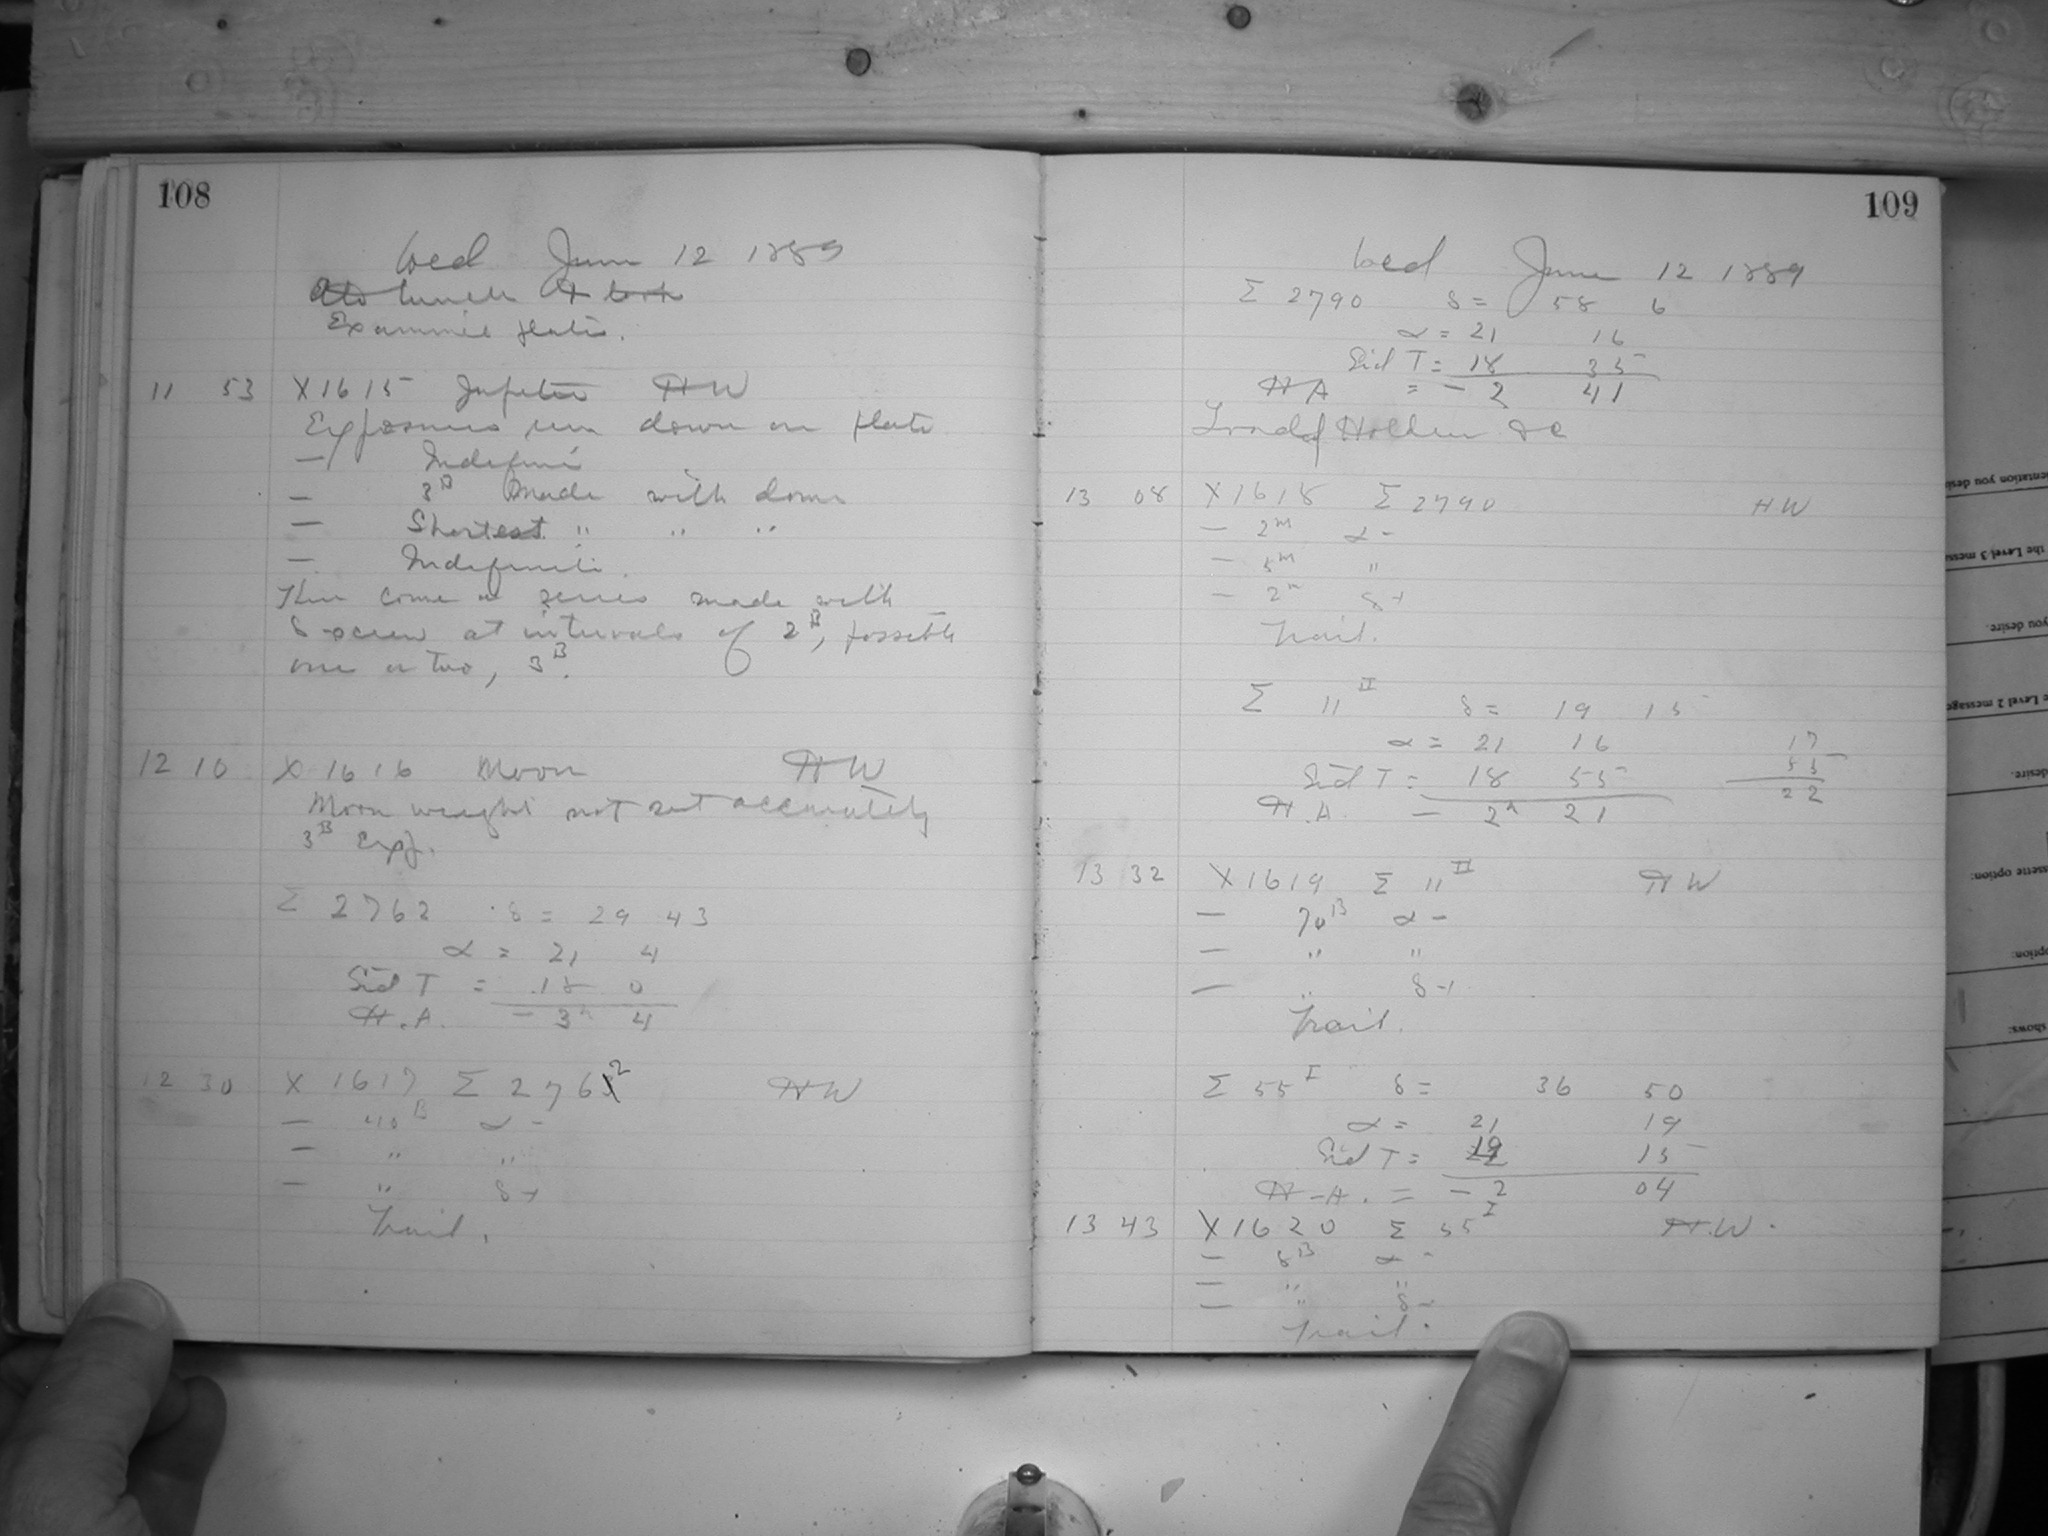 108
Wed June 12 1889
Ate lunch &
Examine plates.
11 53 X1615 Jupiter HW
Exposures run down on plate
— Indefinite
— 3B Made with dome
— Shortest " " "
— Indefinite.
Then come a series made with
δ screw at intervals of 2B, possibly
one or two, 3B.
12 10 X1616 Moon HW
Moon weight not set accurately
3B Exp.
Σ 2762 δ = 29 43
α = 21 4
Sid T = 18 0
H.A. - 3h 4
12 30 X 1617 Σ 2762 HW
— 40B α -
— " "
— " δ +
Trail.
109
Wed June 12 1889
Σ 2790 δ = 58 6
α = 21 16
Sid T = 18 35
HA = - 2 41
Holden &c
13 08 X1618 Σ 2790 HW
— 2m α -
— 5m "
— 2m δ +
Trail.
Σ 11 II δ = 19 15
α = 21 16 17
Sid T = 18 55 55
H.A. - 2h 21 22
13 32 X1619 Σ 11 II HW
— 70B α -
— " "
— " δ +
Trail.
Σ 55 I δ = 36 50
α = 21 19
Sid T = 19 15
H.A. = - 2 04
13 43 X1620 Σ 55 I H.W.
— 8B α -
— " "
— " δ -
Trail.
entation you desire
the Level 3 messa
you desire.
e Level 2 message
desire.
ssette option:
option:
shows: